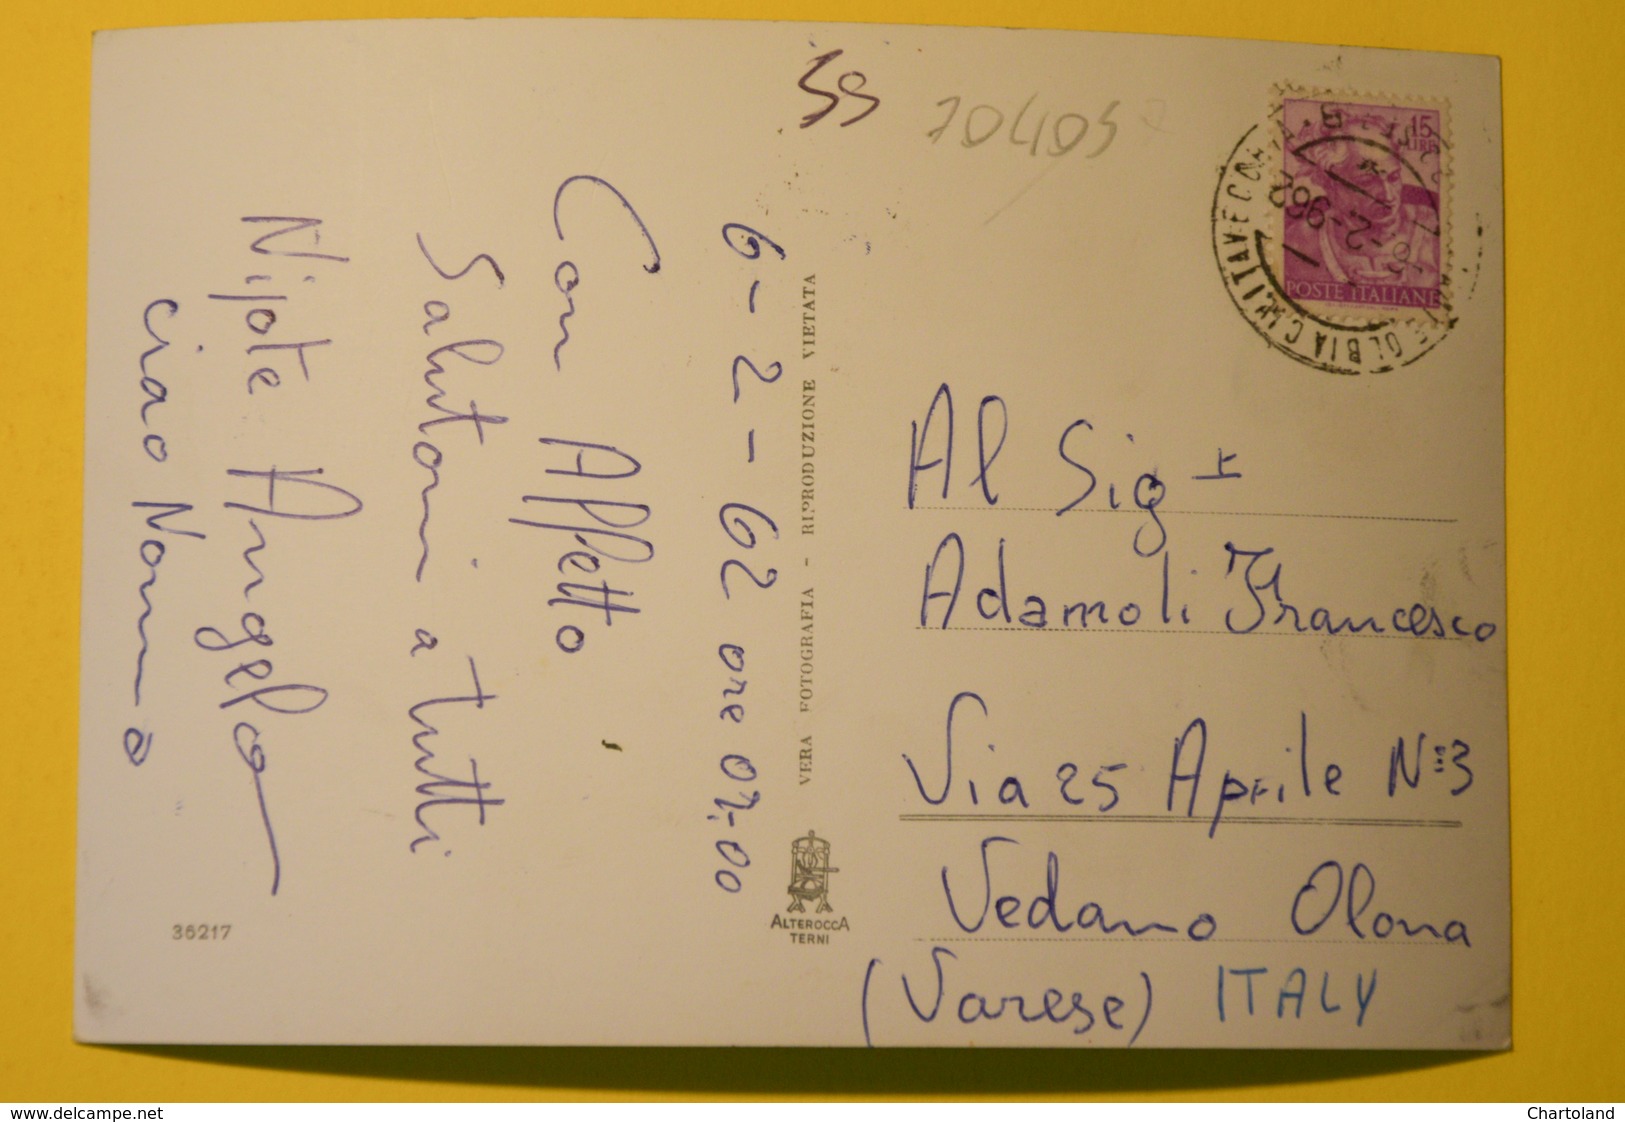 59
70405
15
LIRE
POSTE ITALIANE
6-2-62 ore 07,00
Con Affetto
Salutoni a tutti
Nipote Angelo
ciao Nonno
VERA FOTOGRAFIA - RIPRODUZIONE VIETATA
ALTEROCCA
TERNI
36217
Al Sig r
Adamoli Francesco
Via 25 Aprile N: 3
Vedano Olona
(Varese) ITALY
www.delcampe.net
Chartoland